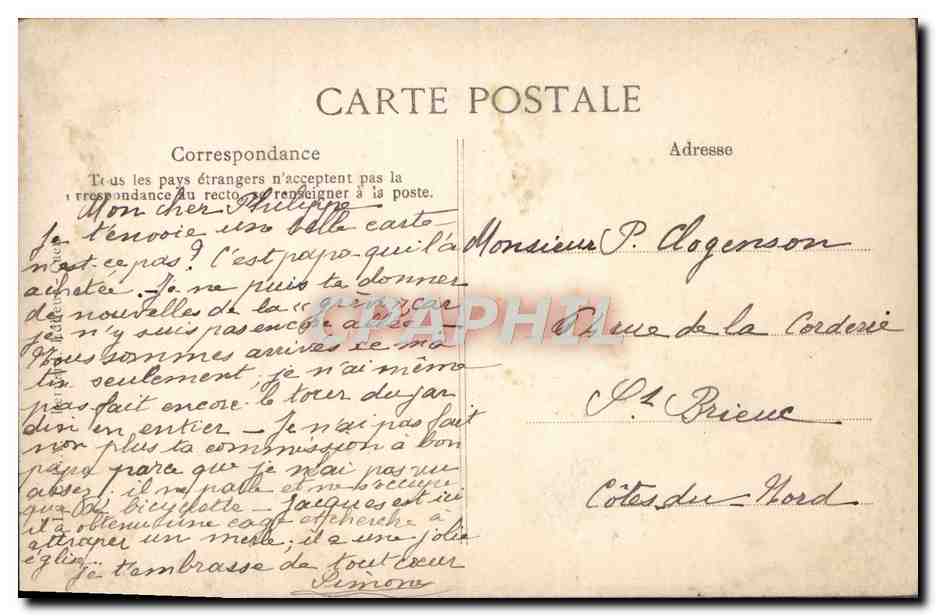 CARTE POSTALE
Correspondance
Tous les pays étrangers n'acceptent pas la
rrespondance au recto, se renseigner à la poste.
Adresse
Mon cher Philippe
Je t'envoie une belle carte
n'est-ce pas? C'est papa qui l'a
achetée. Je ne puis te donner
de nouvelles de la
je n'y suis pas encore allée -
Nous sommes arrivés ce ma
tin seulement, je n'ai même
pas fait encore le tour du jar
din en entier - Je n'ai pas fait
non plus ta commission à bon
papa parce que je n'ai pas vu
assez; il ne parle et ne s'occupe
que de bicyclette - Jacques est ici
il a obtenu une cage et cherche à
attraper un merle; il a une jolie
église..
je t'embrasse de tout cœur
Simone
Monsieur P. Clogenson
rue de la Corderie
St Brieuc
Côtes du Nord
CPAPHIL